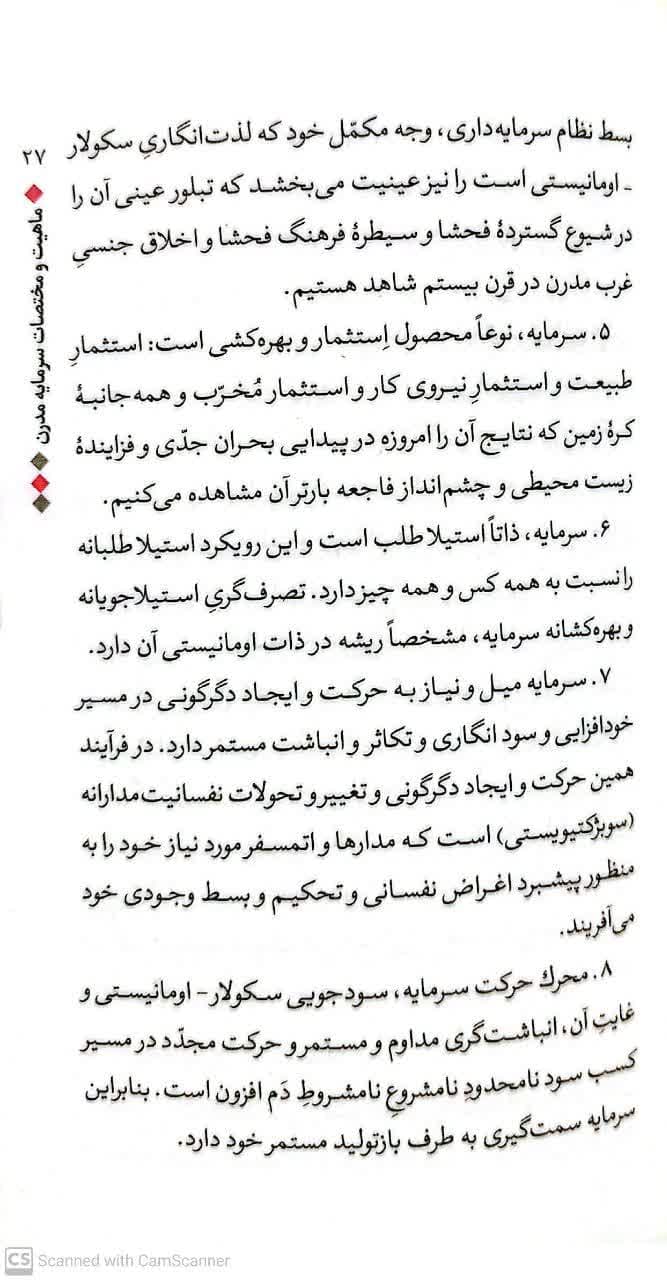 بسط نظام سرمایه‌داری، وجه مکمّل خود که لذت‌انگاریِ سکولار
- اومانیستی است را نیز عینیت می‌بخشد که تبلور عینی آن را
در شیوع گستردهٔ فحشا و سیطرهٔ فرهنگ فحشا و اخلاق جنسیِ
غرب مدرن در قرن بیستم شاهد هستیم.
۵. سرمایه، نوعاً محصول اِستثمار و بهره‌کشی است: استثمارِ
طبیعت و استثمارِ نیروی کار و استثمار مُخرّب و همه جانبهٔ
کرهٔ زمین که نتایج آن را امروزه در پیدایی بحران جدّی و فزایندهٔ
زیست محیطی و چشم‌انداز فاجعه بارتر آن مشاهده می‌کنیم.
۶. سرمایه، ذاتاً استیلا طلب است و این رویکرد استیلا طلبانه
را نسبت به همه کس و همه چیز دارد. تصرف‌گریِ استیلاجویانه
و بهره‌کشانه سرمایه، مشخصاً ریشه در ذات اومانیستی آن دارد.
۷. سرمایه میل و نیاز به حرکت و ایجاد دگرگونی در مسیر
خودافزایی و سود انگاری و تکاثر و انباشت مستمر دارد. در فرآیند
همین حرکت و ایجاد دگرگونی و تغییر و تحولات نفسانیت‌مدارانه
(سوبژکتیویستی) است که مدارها و اتمسفر مورد نیاز خود را به
منظور پیشبرد اغراض نفسانی و تحکیم و بسط وجودی خود
می‌آفریند.
۸. محرك حرکت سرمایه، سودجویی سکولار- اومانیستی و
غایتِ آن، انباشت‌گری مداوم و مستمر و حرکت مجدّد در مسیر
کسب سود نامحدودِ نامشروعِ نامشروطِ دَم افزون است. بنابراین
سرمایه سمت‌گیری به طرف بازتولید مستمر خود دارد.
۲۷
ماهیت و مختصات سرمایه مدرن
CS Scanned with CamScanner